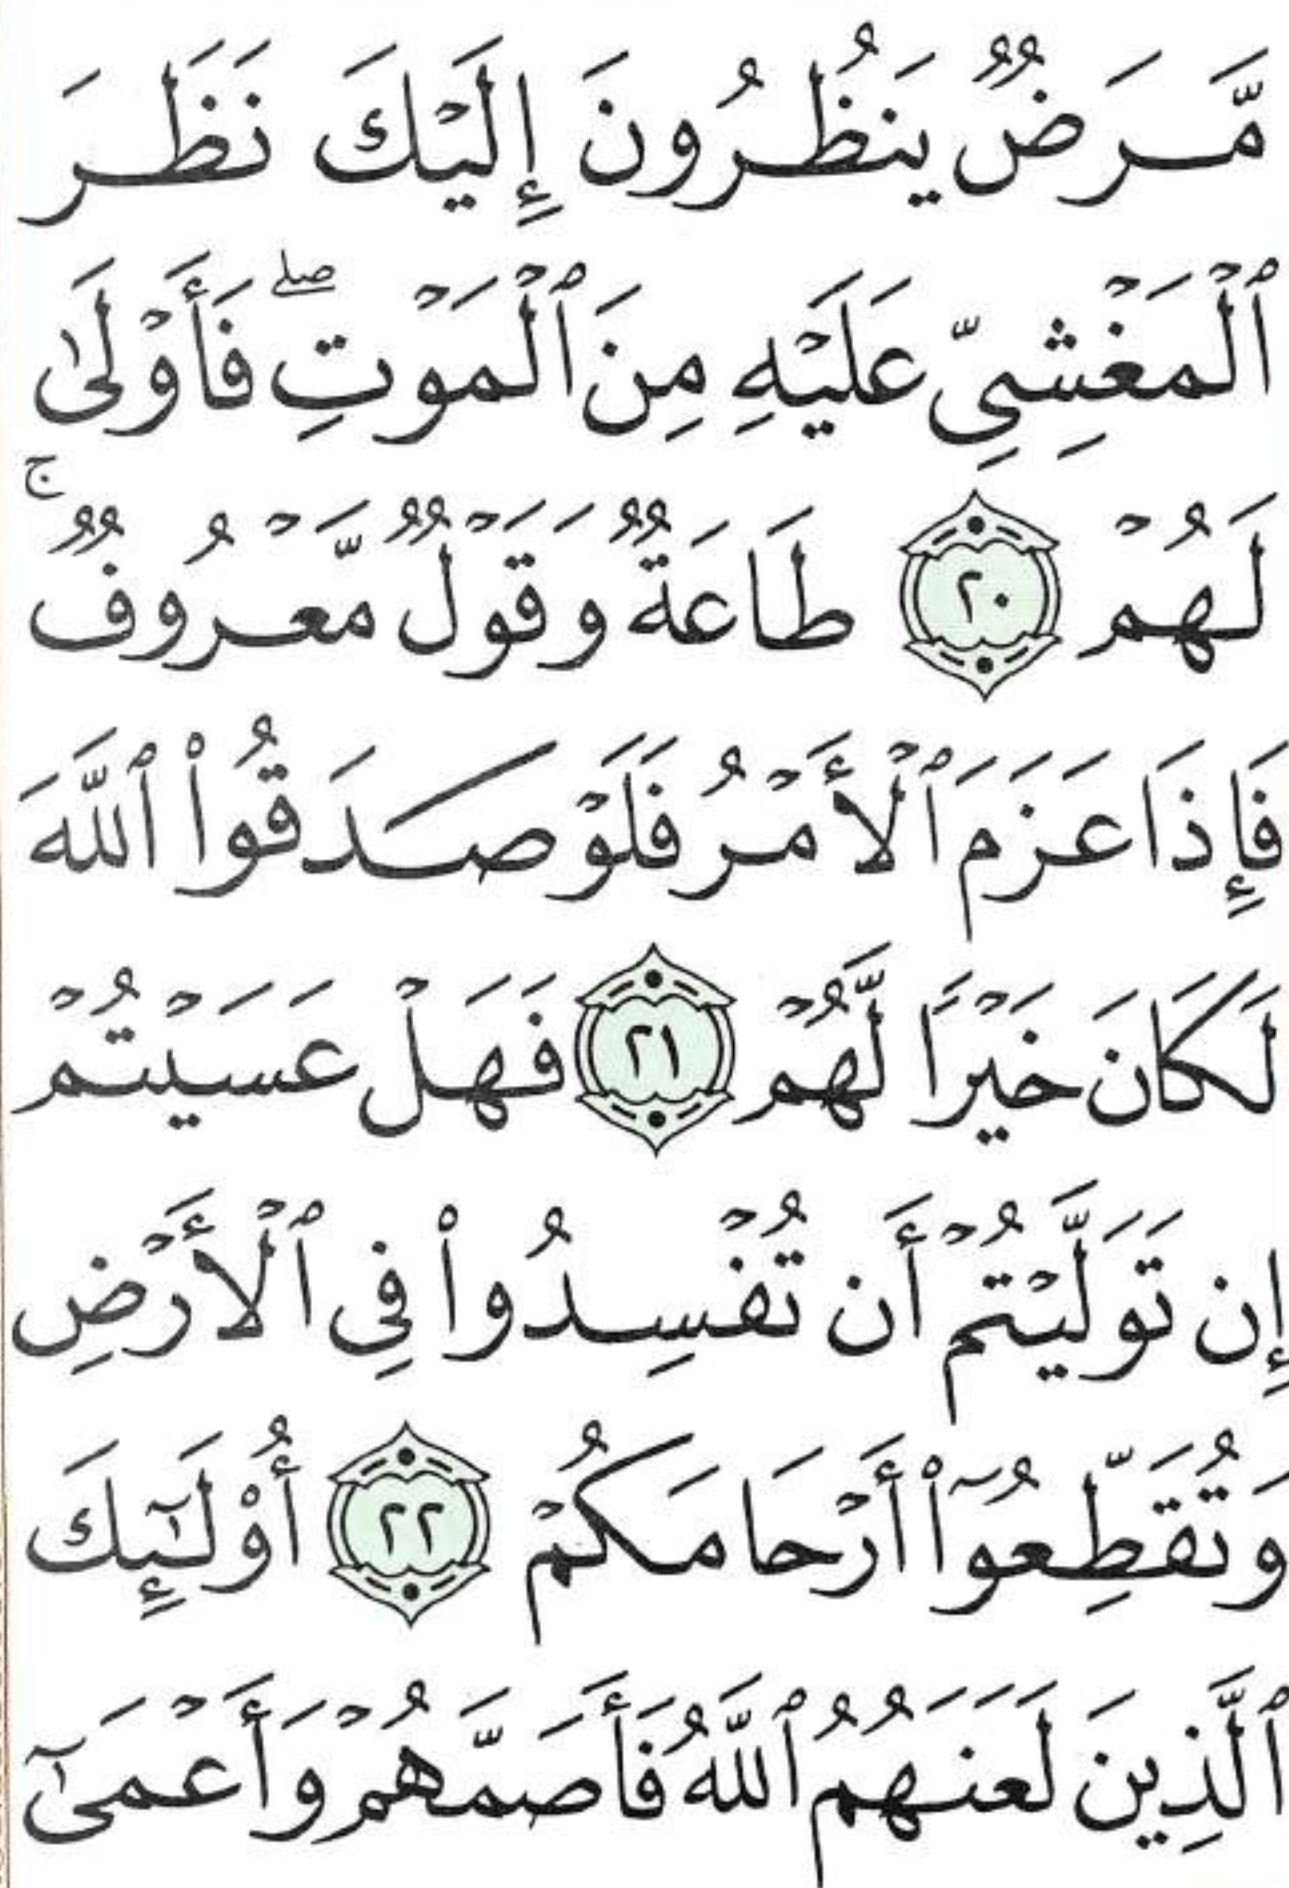 مَّرَضٌ يَنظُرُونَ إِلَيۡكَ نَظَرَ
ٱلۡمَغۡشِيِّ عَلَيۡهِ مِنَ ٱلۡمَوۡتِۖ فَأَوۡلَىٰ
لَهُمۡ ٢٠ طَاعَةٞ وَقَوۡلٞ مَّعۡرُوفٞۚ
فَإِذَا عَزَمَ ٱلۡأَمۡرُ فَلَوۡ صَدَقُواْ ٱللَّهَ
لَكَانَ خَيۡرٗا لَّهُمۡ ٢١ فَهَلۡ عَسَيۡتُمۡ
إِن تَوَلَّيۡتُمۡ أَن تُفۡسِدُواْ فِي ٱلۡأَرۡضِ
وَتُقَطِّعُوٓاْ أَرۡحَامَكُمۡ ٢٢ أُوْلَٰٓئِكَ
ٱلَّذِينَ لَعَنَهُمُ ٱللَّهُ فَأَصَمَّهُمۡ وَأَعۡمَىٰٓ